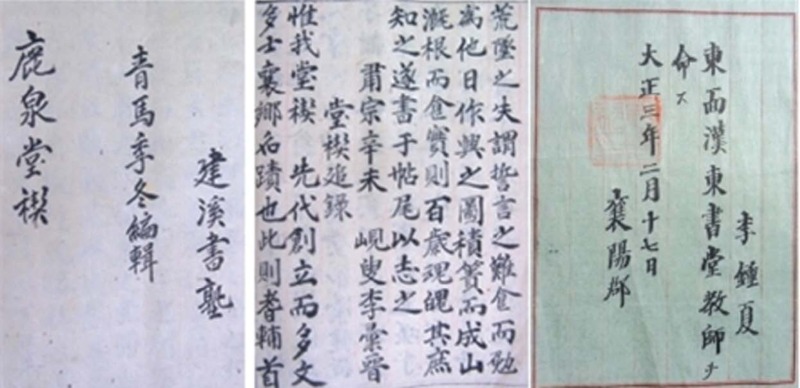 建溪書塾
青馬季冬編輯
鹿泉堂禊
荒墜之失謂誓言之難食而勉
爲他日作興之圖積簣而成山
漑根而食實則百歲現魄其庶
知之遂書于帖尾以志之
肅宗辛未 峴叟李彙晉
堂禊追錄
惟我堂禊 先代創立而多文
多士襄鄉名蹟也此則耆輔首
李鍾夏
東面漢東書堂教師ヲ
命ス
大正三年二月十七日
襄陽郡